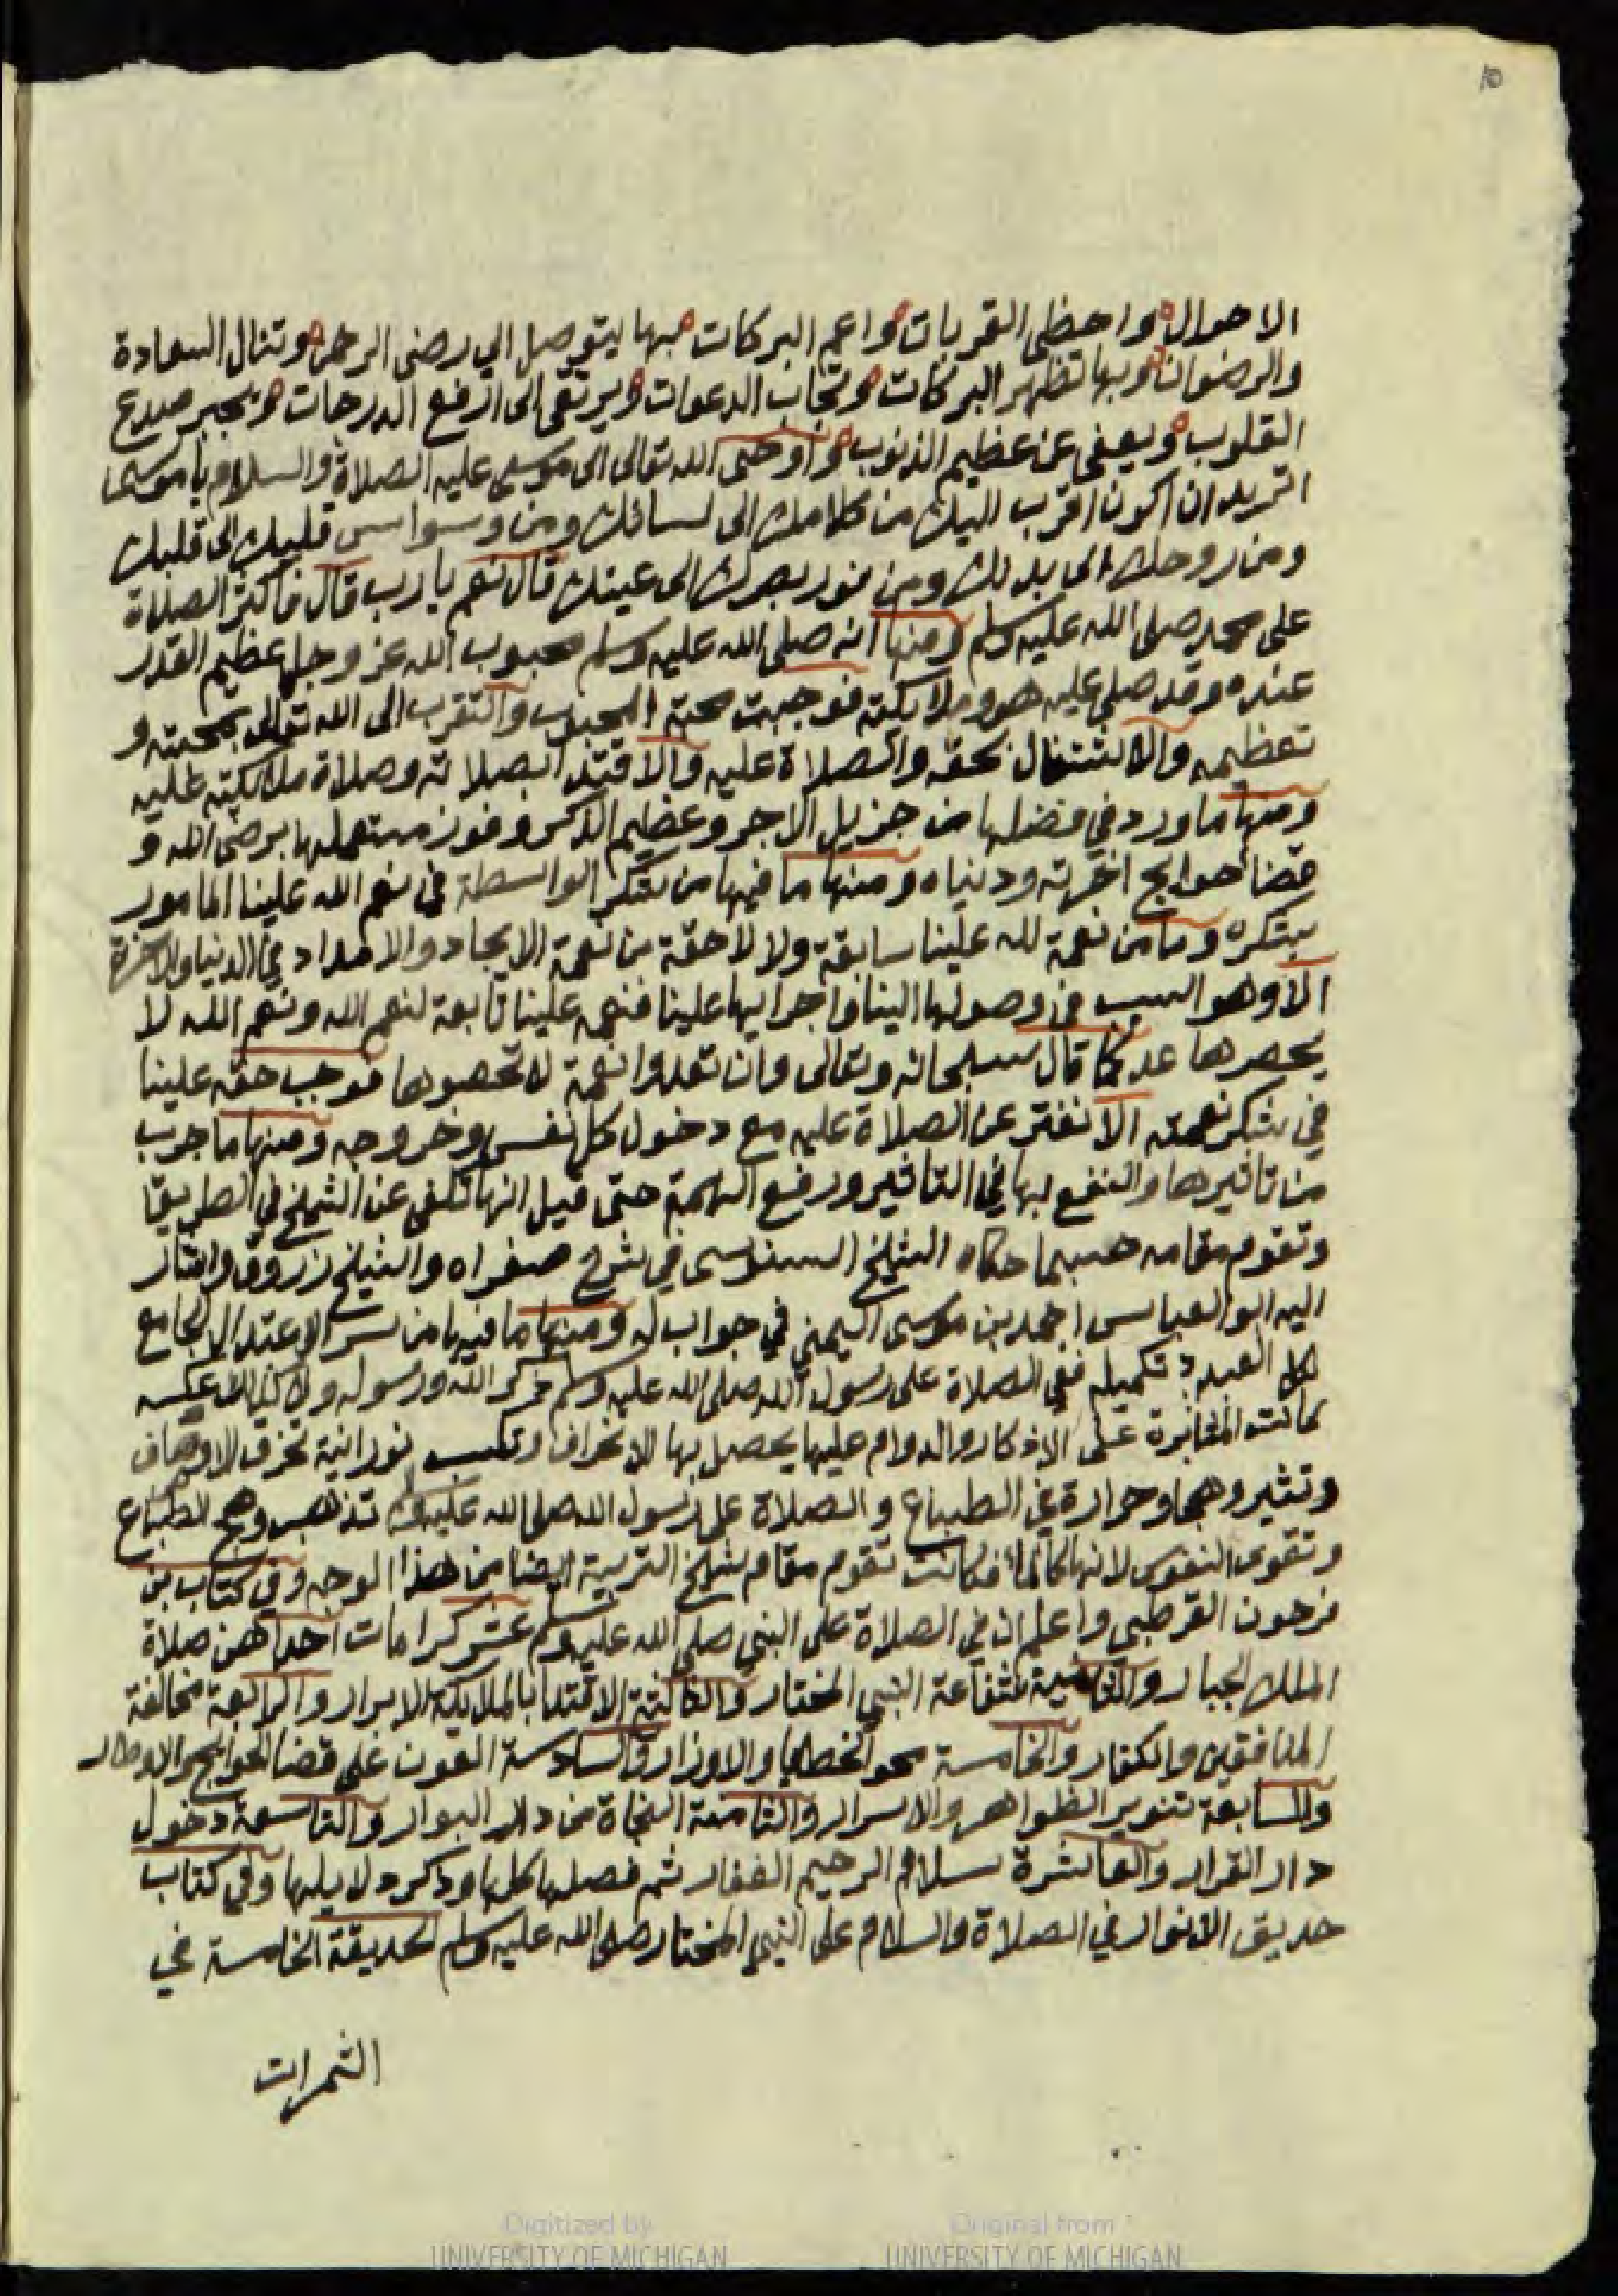 10
الاحوال واحظى القربات واعم البركات فبها يتوصل الي رضى الرحمن وتنال السعادة
والرضوان وبها تظهر البركات وتجاب الدعوات ويرتقى الى ارفع الدرجات ويجبر صدع
القلوب ويعفى عن عظيم الذنوب واوحى الله تعالى الى موسى عليه الصلاة والسلام يا موسى
اتريد ان اكون اقرب اليك من كلامك الى لسانك ومن وسواس قلبك الى قلبك
ومن روحك الى بدنك ومن نور بصرك الى عينك قال نعم يا رب قال فاكثر الصلاة
على محمد صلى الله عليه وسلم ومنها انه صلى الله عليه وسلم محبوب الله عز وجل عظيم القدر
عنده وقد صلى عليه هو وملايكته فوجبت محبة المحبوب والتقرب الى الله تعالى بمحبته و
تعظيمه والاشتغال بحقه والصلاة عليه والاقتدا بصلاته وصلاة ملايكته عليه
ومنها ما ورد في فضلها من جزيل الاجر وعظيم الذكر وفوز مستعملها برضى الله و
قضا حوايج اخرته ودنياه ومنها ما فيها من شكر الواسطة في نعم الله علينا المامور
بشكره وما من نعمة لله علينا سابقة ولا لاحقة من نعمة الايجاد والامداد في الدنيا والاخرة
الا وهو السبب في وصولها الينا واجرايها علينا فنعمه علينا تابعة لنعم الله ونعم الله لا
يحصرها عد كما قال سبحانه وتعالى وان تعدوا نعمة لا تحصوها فوجب حقه علينا
في شكر نعمته الا نفتر عن الصلاة عليه مع دخول كل نفس وخروجه ومنها ما جرب
من تاثيرها والنفع بها في التاثير ورفع الهمة حتى قيل انها تكفى عن الشيخ في الطريق
وتقوم مقامه حسبما حكاه الشيخ السنوسى في شرح صغراه والشيخ زروق واشار
اليه ابو العباس احمد بن موسى اليمنى في جواب له ومنها ما فيها من سر الاعتدال الجامع
لكل العبد وتكميله ففى الصلاة على رسول الله صلى الله عليه وسلم ذكر الله ورسوله ولا كذلك عكسه
كانت المثابرة على الاذكار والدوام عليها يحصل بها الانحراف وتكسب نورانية تحرق الاوصاف
وتثير وهجا وحرارة في الطباع والصلاة على رسول الله صلى الله عليه وسلم تذهب وهج الطباع
وتقوى النفوس لانها كالما فكانت تقوم مقام شيخ التربية ايضا من هذا الوجه وفي كتاب بن
فرحون القرطبي واعلم ان في الصلاة على النبي صلى الله عليه وسلم عشر كرامات احداهن صلاة
الملك الجبار والثانية شفاعة النبى المختار والثالثة الاقتدا بالملايكة الابرار والرابعة مخالفة
المنافقين والكفار والخامسة محو الخطايا والاوزار والسادسة العون على قضا الحوايج والاوطار
والسابعة تنوير الظواهر والاسرار والثامنة النجاة من دار البوار والتاسعة دخول
دار القرار والعاشرة سلام الرحيم الغفار ثم فصلها كلها وذكر دلايلها وفي كتاب
حديق الانوار في الصلاة والسلام على النبي المختار صلى الله عليه وسلم الحديقة الخامسة في
الثمرات
Digitized by
UNIVERSITY OF MICHIGAN
Original from
UNIVERSITY OF MICHIGAN